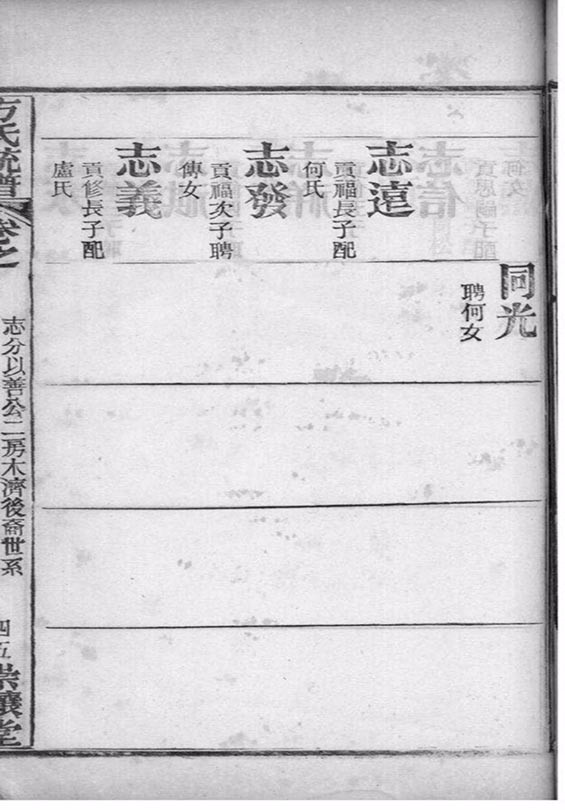 同光
聘何女
志遠
貢福長子配
何氏
志發
貢福次子聘
傅女
志義
貢修長子配
盧氏
方氏統譜
卷之
志分以善公二房木濟後裔世系
四五